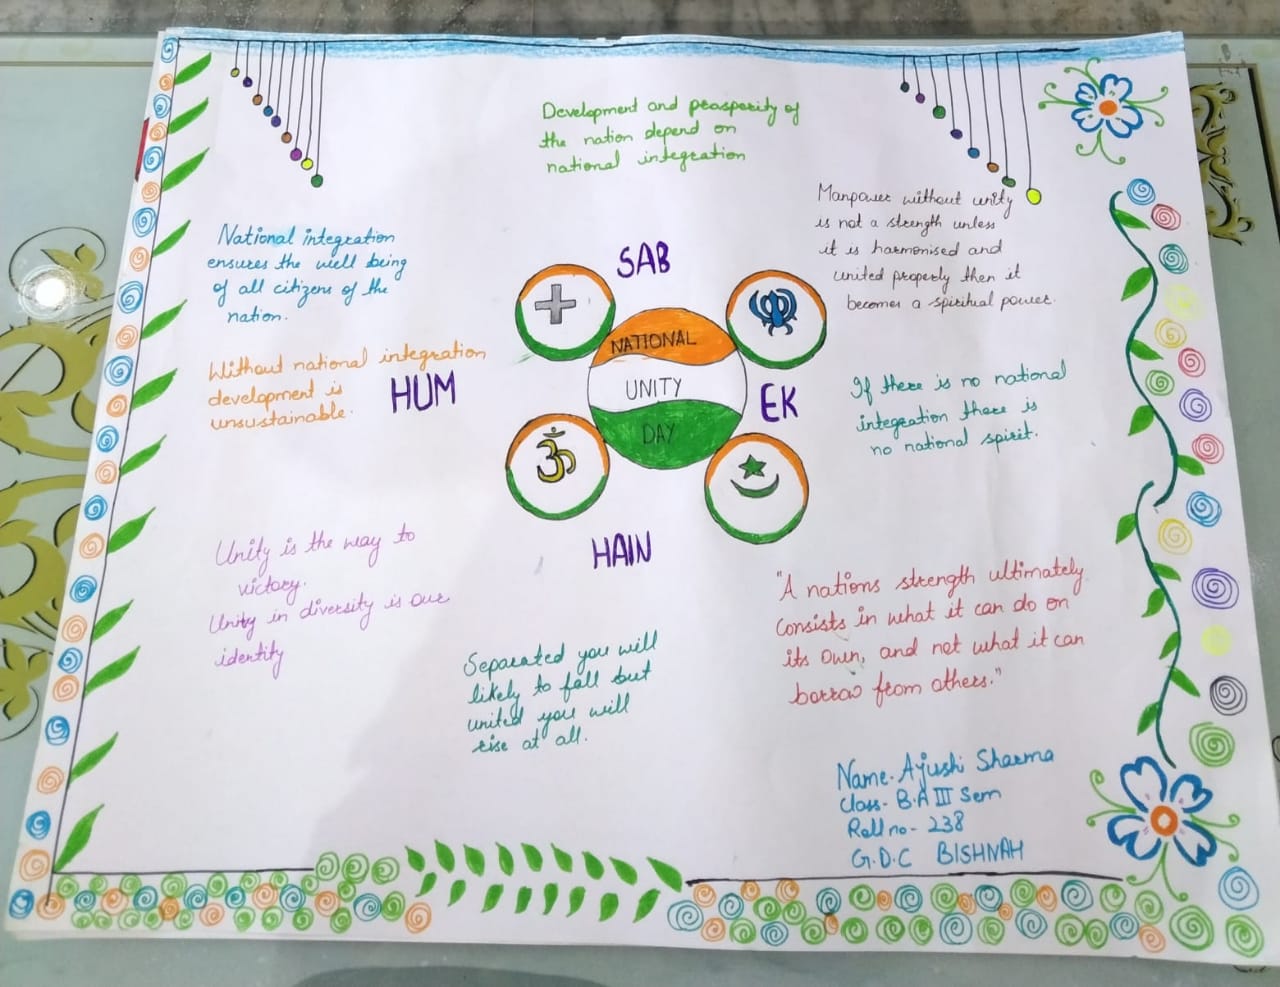 Development and prosperity of
the nation depend on
national integration
Manpower without unity
is not a strength unless
it is harmonised and
united properly then it
becomes a spiritual power.
National integration
ensures the well being
of all citizens of the
nation.
SAB
Without national integration
development is
unsustainable.
HUM
NATIONAL
UNITY
DAY
EK
If there is no national
integration there is
no national spirit.
ॐ
HAIN
Unity is the way to
victory.
Unity in diversity is our
identity
"A nations strength ultimately
consists in what it can do on
its own, and not what it can
borrow from others."
Separated you will
likely to fall but
united you will
rise at all.
Name- Ayushi Sharma
Class- B.A III Sem
Roll no- 238
G.D.C BISHNAH